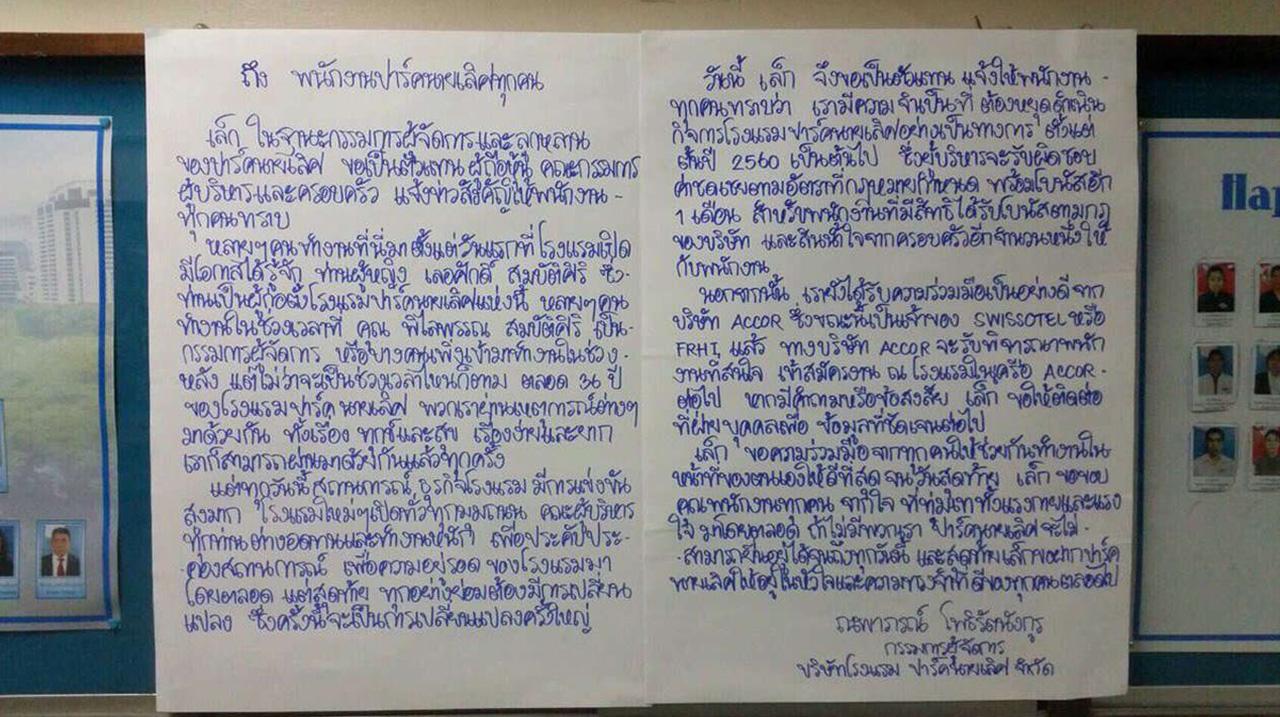 ถึง พนักงานปาร์คนายเลิศทุกคน
เล็ก ในฐานะกรรมการผู้จัดการและลูกหลาน
ของปาร์คนายเลิศ ขอเป็นตัวแทน ผู้ถือหุ้น คณะกรรมการ
ผู้บริหารและครอบครัว แจ้งข่าวสำคัญให้พนักงาน-
ทุกคนทราบ
หลายๆคนทำงานที่นี่มา ตั้งแต่วันแรกที่โรงแรมเปิด
มีโอกาสได้รู้จัก ท่านผู้หญิง เลอศักดิ์ สมบัติศิริ ซึ่ง
ท่านเป็นผู้ก่อตั้งโรงแรมปาร์คนายเลิศแห่งนี้ หลายๆคน
ทำงานในช่วงเวลาที่ คุณ พิไลพรรณ สมบัติศิริ เป็น
กรรมการผู้จัดการ หรือบางคนเพิ่งเข้ามาทำงานในช่วง
หลัง แต่ไม่ว่าจะเป็นช่วงเวลาไหนก็ตาม ตลอด 36 ปี
ของโรงแรมปาร์คนายเลิศ พวกเราผ่านเหตุการณ์ต่างๆ
มาด้วยกัน ทั้งเรื่อง ทุกข์และสุข เรื่องง่ายและยาก
เราก็สามารถผ่านมาด้วยกันแล้วทุกครั้ง
แต่ทุกวันนี้ สถานการณ์ ธุรกิจโรงแรม มีการแข่งขัน
สูงมาก โรงแรมใหม่ๆเปิดทั่วทุกมุมถนน คณะผู้บริหาร
ทุกท่าน ต่างอดทนและทำงานหนัก เพื่อประคับประ-
-คองสถานการณ์ เพื่อความอยู่รอด ของโรงแรมมา
โดยตลอด แต่สุดท้าย ทุกอย่างย่อมต้องมีการเปลี่ยน
แปลง ซึ่งครั้งนี้จะเป็นการเปลี่ยนแปลงครั้งใหญ่
วันนี้ เล็ก จึงขอเป็นตัวแทน แจ้งให้พนักงาน-
ทุกคนทราบว่า เรามีความจำเป็นที่ ต้องหยุดดำเนิน
กิจการโรงแรมปาร์คนายเลิศอย่างเป็นทางการ ตั้งแต่
ต้นปี 2560 เป็นต้นไป ซึ่งผู้บริหารจะรับผิดชอบ
ค่าชดเชยตามอัตราที่กฎหมายกำหนด พร้อมโบนัสอีก
1 เดือน สำหรับพนักงานที่มีสิทธิได้รับโบนัสตามกฎ
ของบริษัท และสินน้ำใจจากครอบครัวอีกจำนวนหนึ่งให้
กับพนักงาน
นอกจากนั้น เรายังได้รับความร่วมมือเป็นอย่างดี จาก
บริษัท ACCOR ซึ่งขณะนี้เป็นเจ้าของ SWISSOTEL หรือ
FRHI แล้ว ทางบริษัท ACCOR จะรับพิจารณาพนัก
งานที่สนใจ เข้าสมัครงาน ณ โรงแรมในเครือ ACCOR-
ต่อไป หากมีคำถามหรือข้อสงสัย เล็ก ขอให้ติดต่อ
ที่ฝ่ายบุคคลเพื่อ ข้อมูลที่ชัดเจนต่อไป
เล็ก ขอความร่วมมือ จากทุกคนให้ช่วยกันทำงานใน
หน้าที่ของตนเองให้ดีที่สุด จนวันสุดท้าย เล็ก ขอขอบ
คุณพนักงานทุกคน จากใจ ที่ทุ่มเททั้งแรงกายและแรง
ใจ มาโดยตลอด ถ้าไม่มีพวกเรา ปาร์คนายเลิศ จะไม่-
-สามารถยืนอยู่ได้จนถึงทุกวันนี้ และสุดท้ายเล็กขอฝากปาร์ค
นายเลิศให้อยู่ในหัวใจและความทรงจำที่ดีของทุกคนตลอดไป
ณพาภรณ์ โพธิรัตนังกูร
กรรมการผู้จัดการ
บริษัทโรงแรม ปาร์คนายเลิศ จำกัด